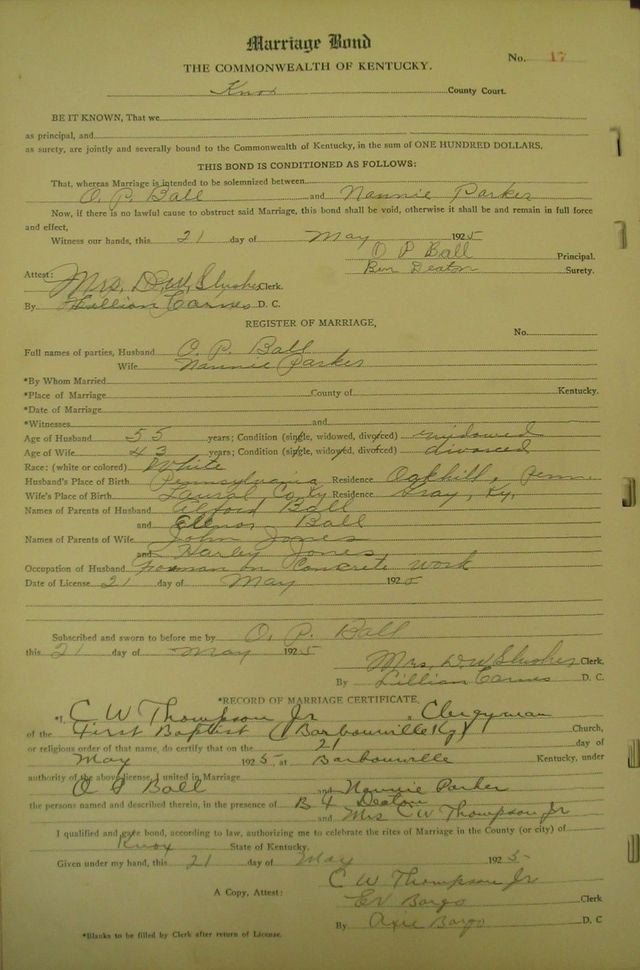 Marriage Bond
THE COMMONWEALTH OF KENTUCKY.
No. 17
Knox County Court.
BE IT KNOWN, That we
as principal, and
as surety, are jointly and severally bound to the Commonwealth of Kentucky, in the sum of ONE HUNDRED DOLLARS.
THIS BOND IS CONDITIONED AS FOLLOWS:
That, whereas Marriage is intended to be solemnized between
O. P. Ball and Nannie Parker
Now, if there is no lawful cause to obstruct said Marriage, this bond shall be void, otherwise it shall be and remain in full force
and effect,
Witness our hands, this 21 day of May 1925
O P Ball Principal.
Ben Deaton Surety.
Attest: Mrs. D.W. Slusher Clerk.
By Lillian Carnes D. C.
REGISTER OF MARRIAGE,
No.
Full names of parties, Husband O. P. Ball
Wife Nannie Parker
*By Whom Married
*Place of Marriage County of Kentucky.
*Date of Marriage
*Witnesses and
Age of Husband 55 years; Condition (single, widowed, divorced) widowed
Age of Wife 43 years; Condition (single, widowed, divorced) divorced
Race: (white or colored) White
Husband's Place of Birth Pennsylvania Residence Oakhill, Penn.
Wife's Place of Birth Laural Conty Residence Gray, Ky.
Names of Parents of Husband Alford Ball
and Ellenor Ball
Names of Parents of Wife John Jones
and Harley Jones
Occupation of Husband Forman on Concrete work
Date of License 21 day of May 1925
Subscribed and sworn to before me by O. P. Ball
this 21 day of May 1925
Mrs. D W Slusher Clerk.
By Lillian Carnes D. C.
*RECORD OF MARRIAGE CERTIFICATE.
*I, C W Thompson Jr a Clergyman
of the First Baptist (Barbourville Ky) Church,
or religious order of that name, do certify that on the 21 day of
May 1925, at Barbourville Kentucky, under
authority of the above license, I united in Marriage
O P Ball and Nannie Parker
the persons named and described therein, in the presence of B F Deaton
and Mrs C W Thompson Jr
I qualified and gave bond, according to law, authorizing me to celebrate the rites of Marriage in the County (or city) of
Knox State of Kentucky.
Given under my hand, this 21 day of May 1925
C W Thompson Jr
A Copy, Attest: Ev Bargo Clerk
By Axie Bargo D. C
*Blanks to be filled by Clerk after return of License.